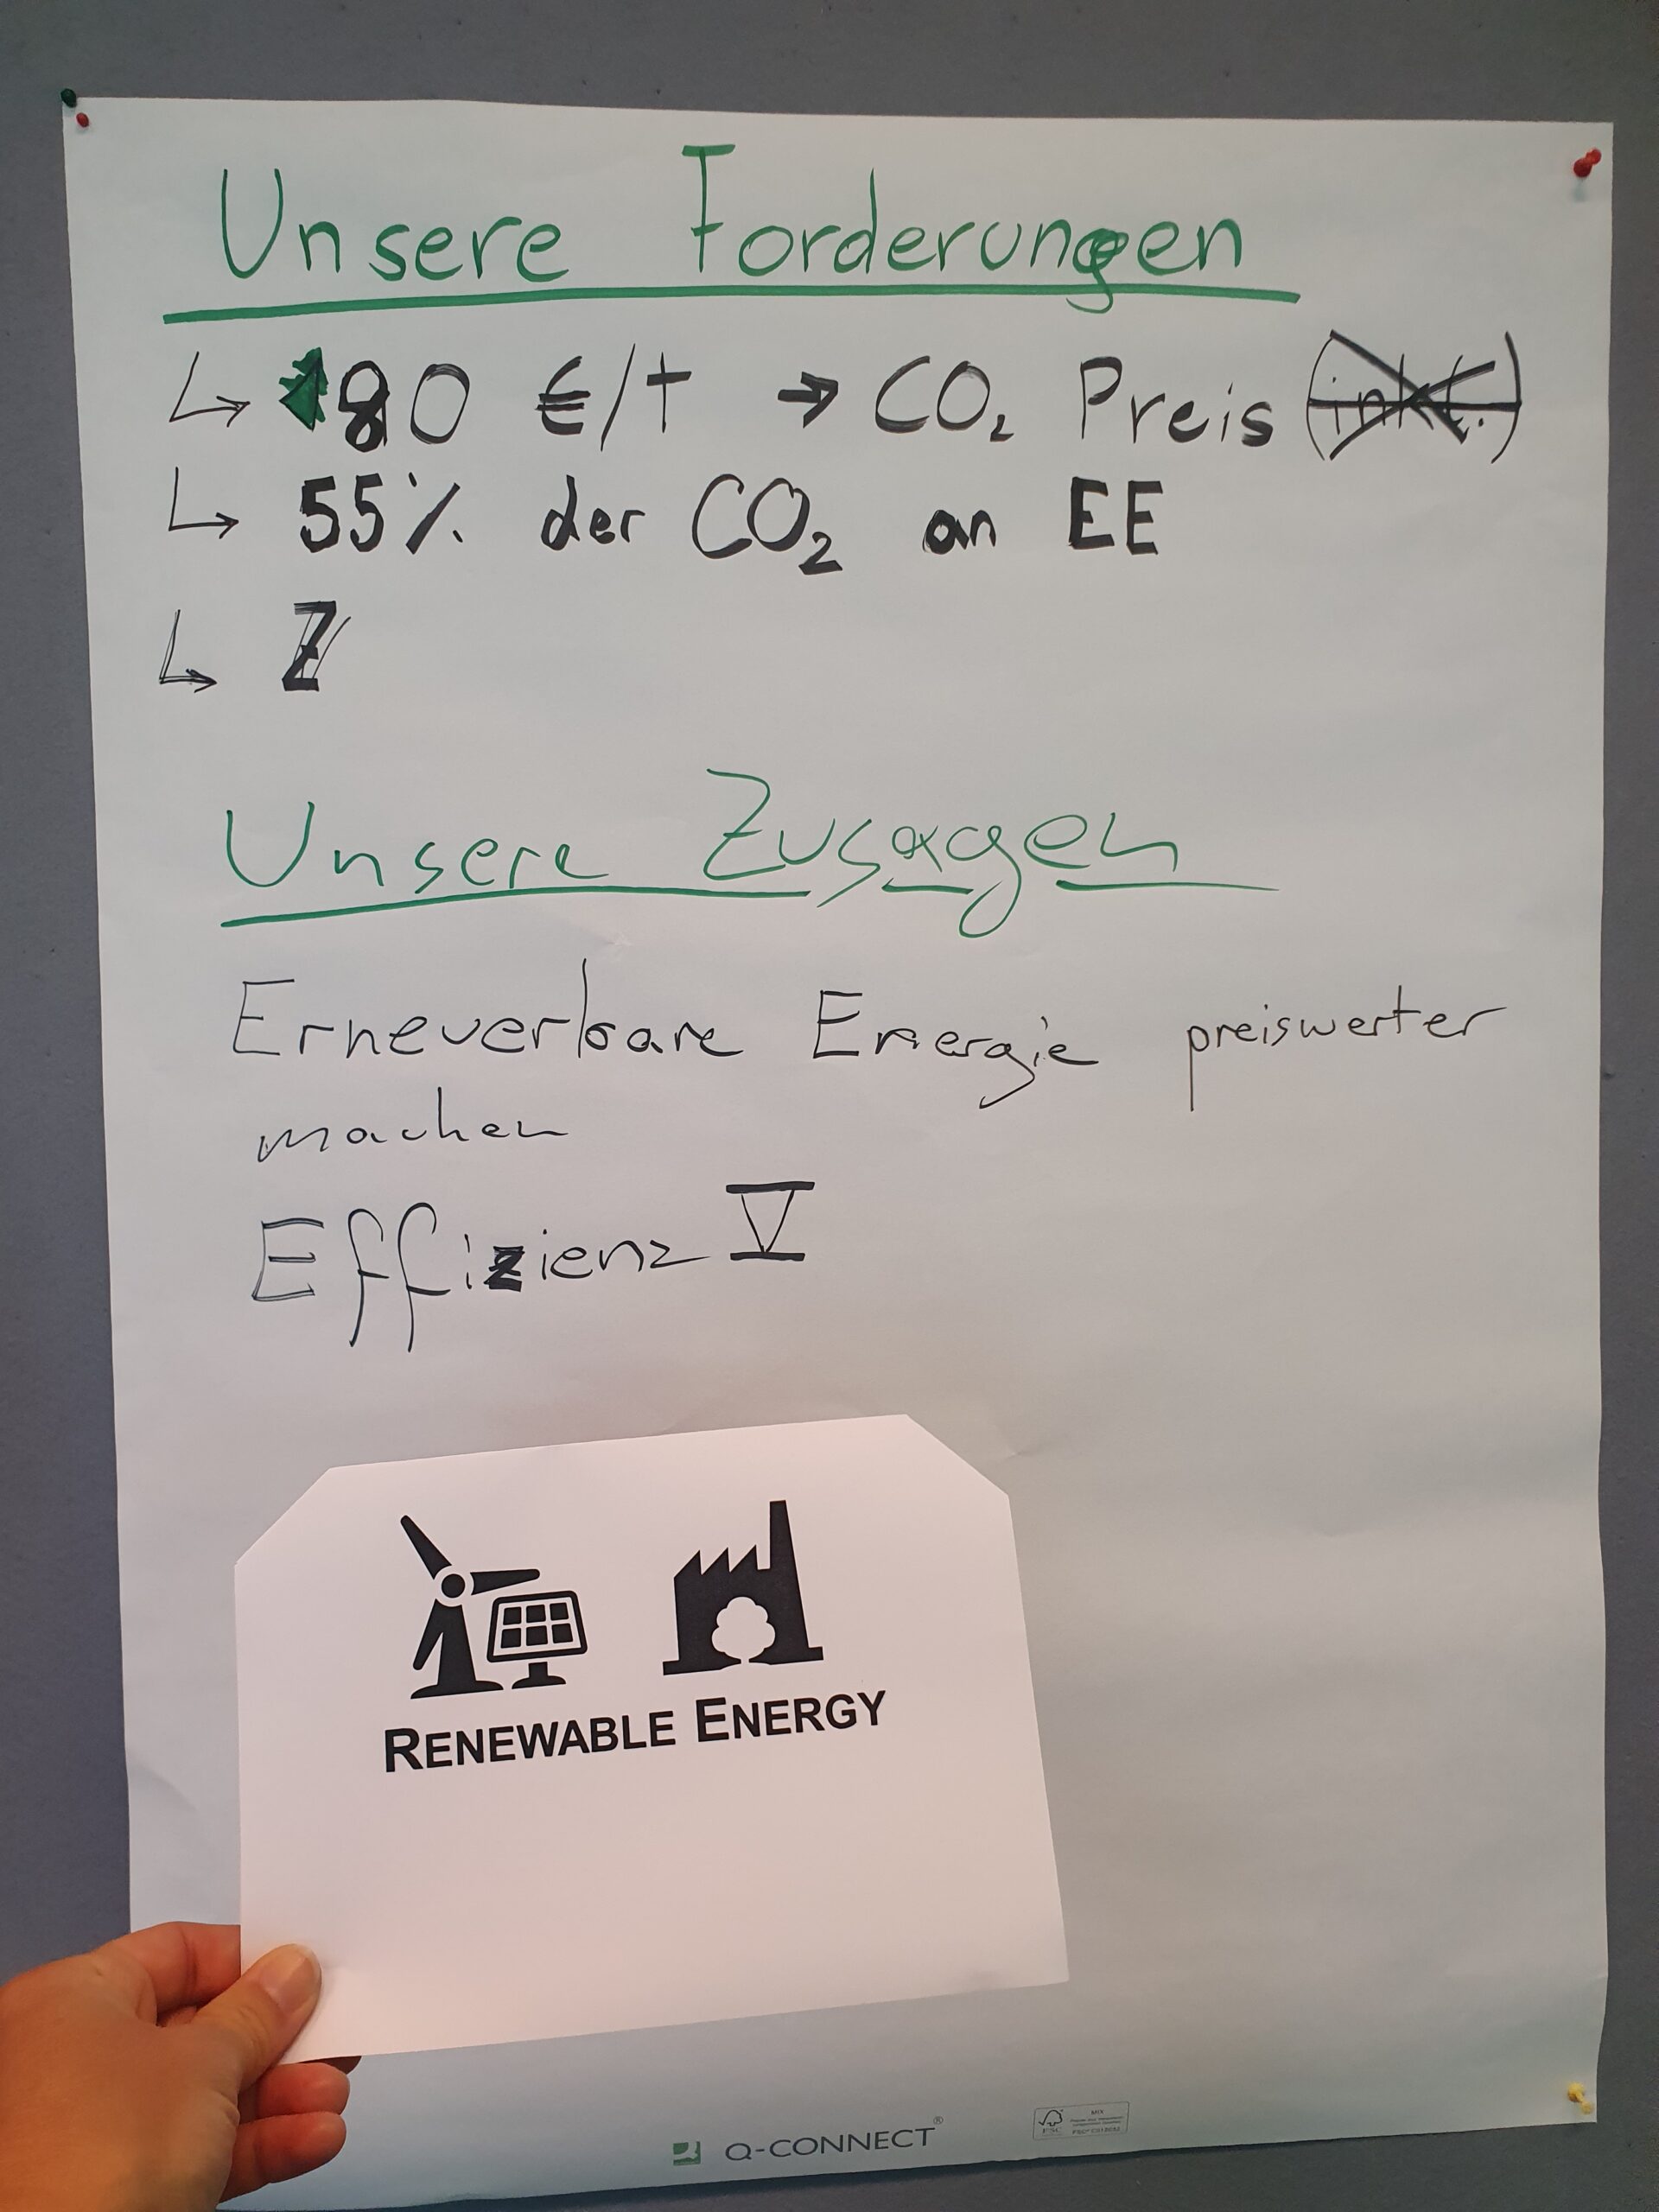 Unsere Forderungen
↳ 80 €/t → CO₂ Preis
↳ 55% der CO₂ an EE
↳ Z
Unsere Zusagen
Erneuerbare Energie preiswerter
machen
Effizienz V
RENEWABLE ENERGY
Q-CONNECT®
FSC
MIX